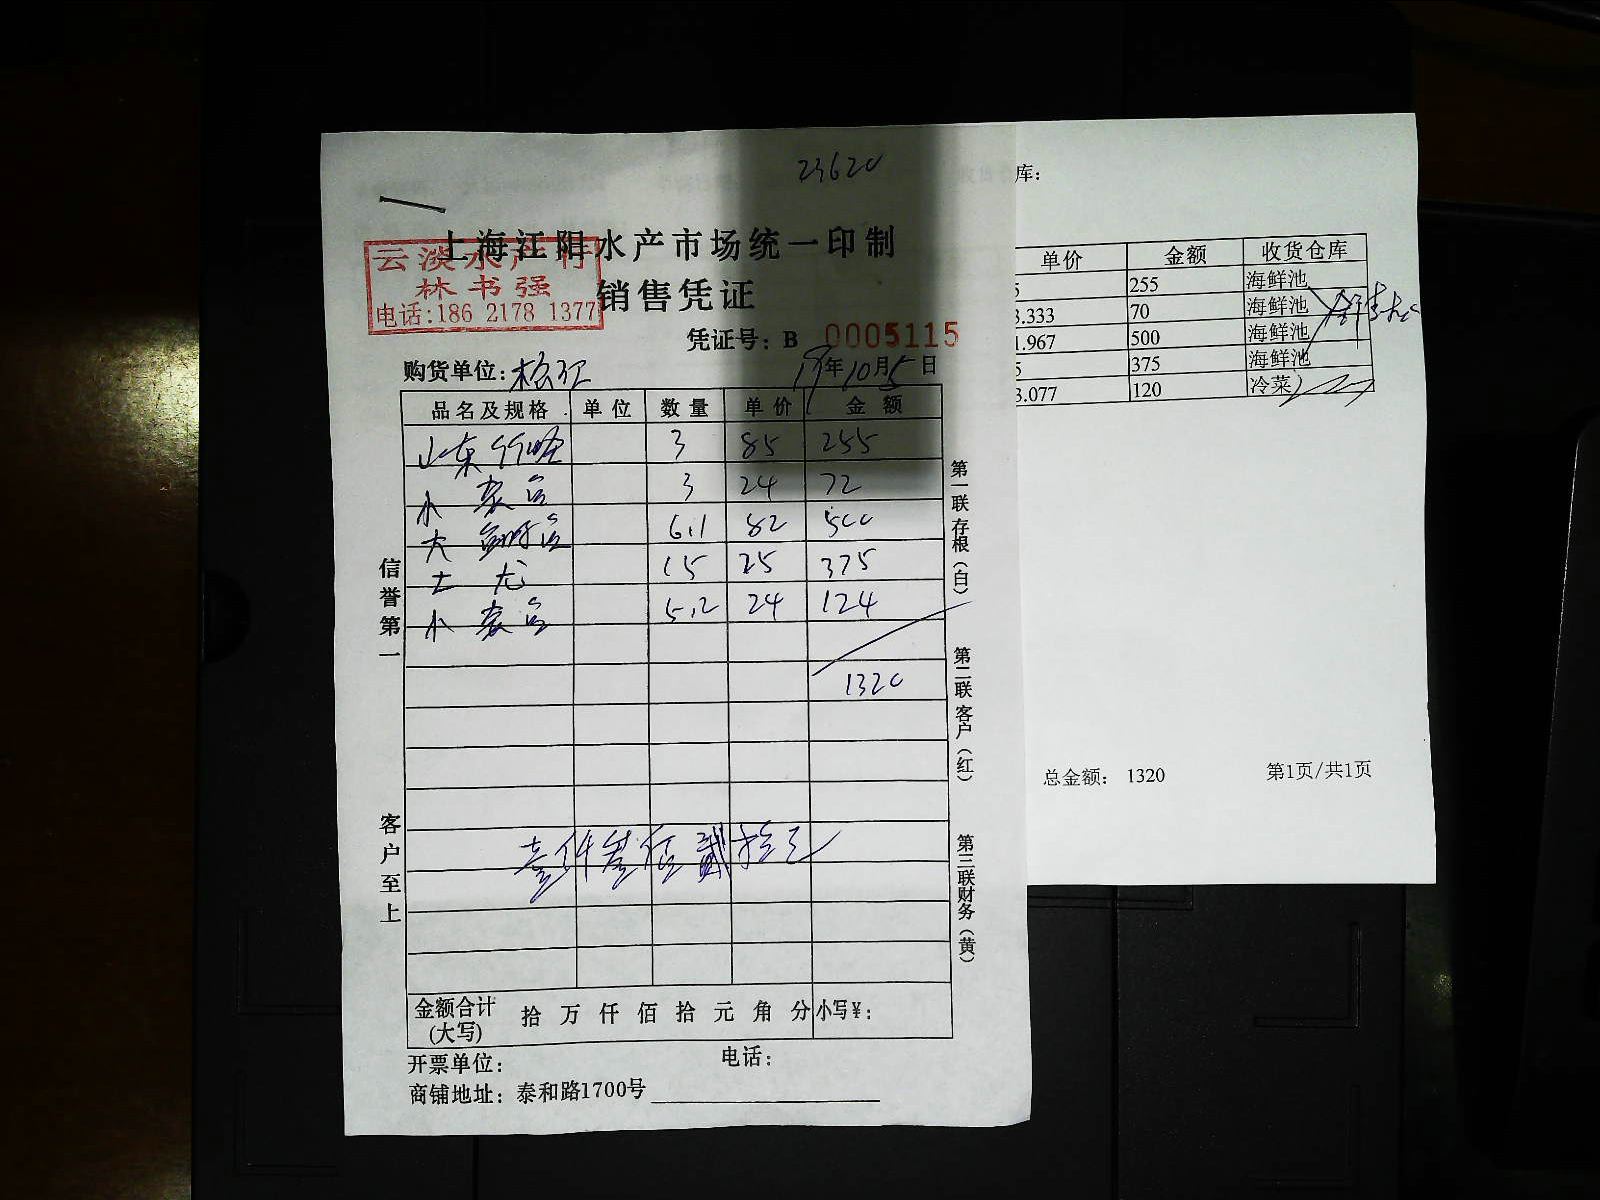 23620
上海江阳水产市场统一印制
云淡水产行
林书强
电话:186 2178 1377
销售凭证
凭证号: B 0005115
购货单位: 19年10月5日
品名及规格 单位 数量 单价 金额
山东 3 85 255
小 3 24 72
大 6.1 82 500
土龙 15 25 375
小 5.2 24 124
1320
壹仟叁佰贰拾元
金额合计(大写) 拾 万 仟 佰 拾 元 角 分 小写¥:
开票单位: 电话:
商铺地址: 泰和路1700号
信誉第一
客户至上
第一联存根(白)
第二联客户(红)
第三联财务(黄)
库:
单价 金额 收货仓库
5 255 海鲜池
3.333 70 海鲜池
1.967 500 海鲜池
5 375 海鲜池
3.077 120 冷菜
总金额: 1320 第1页/共1页